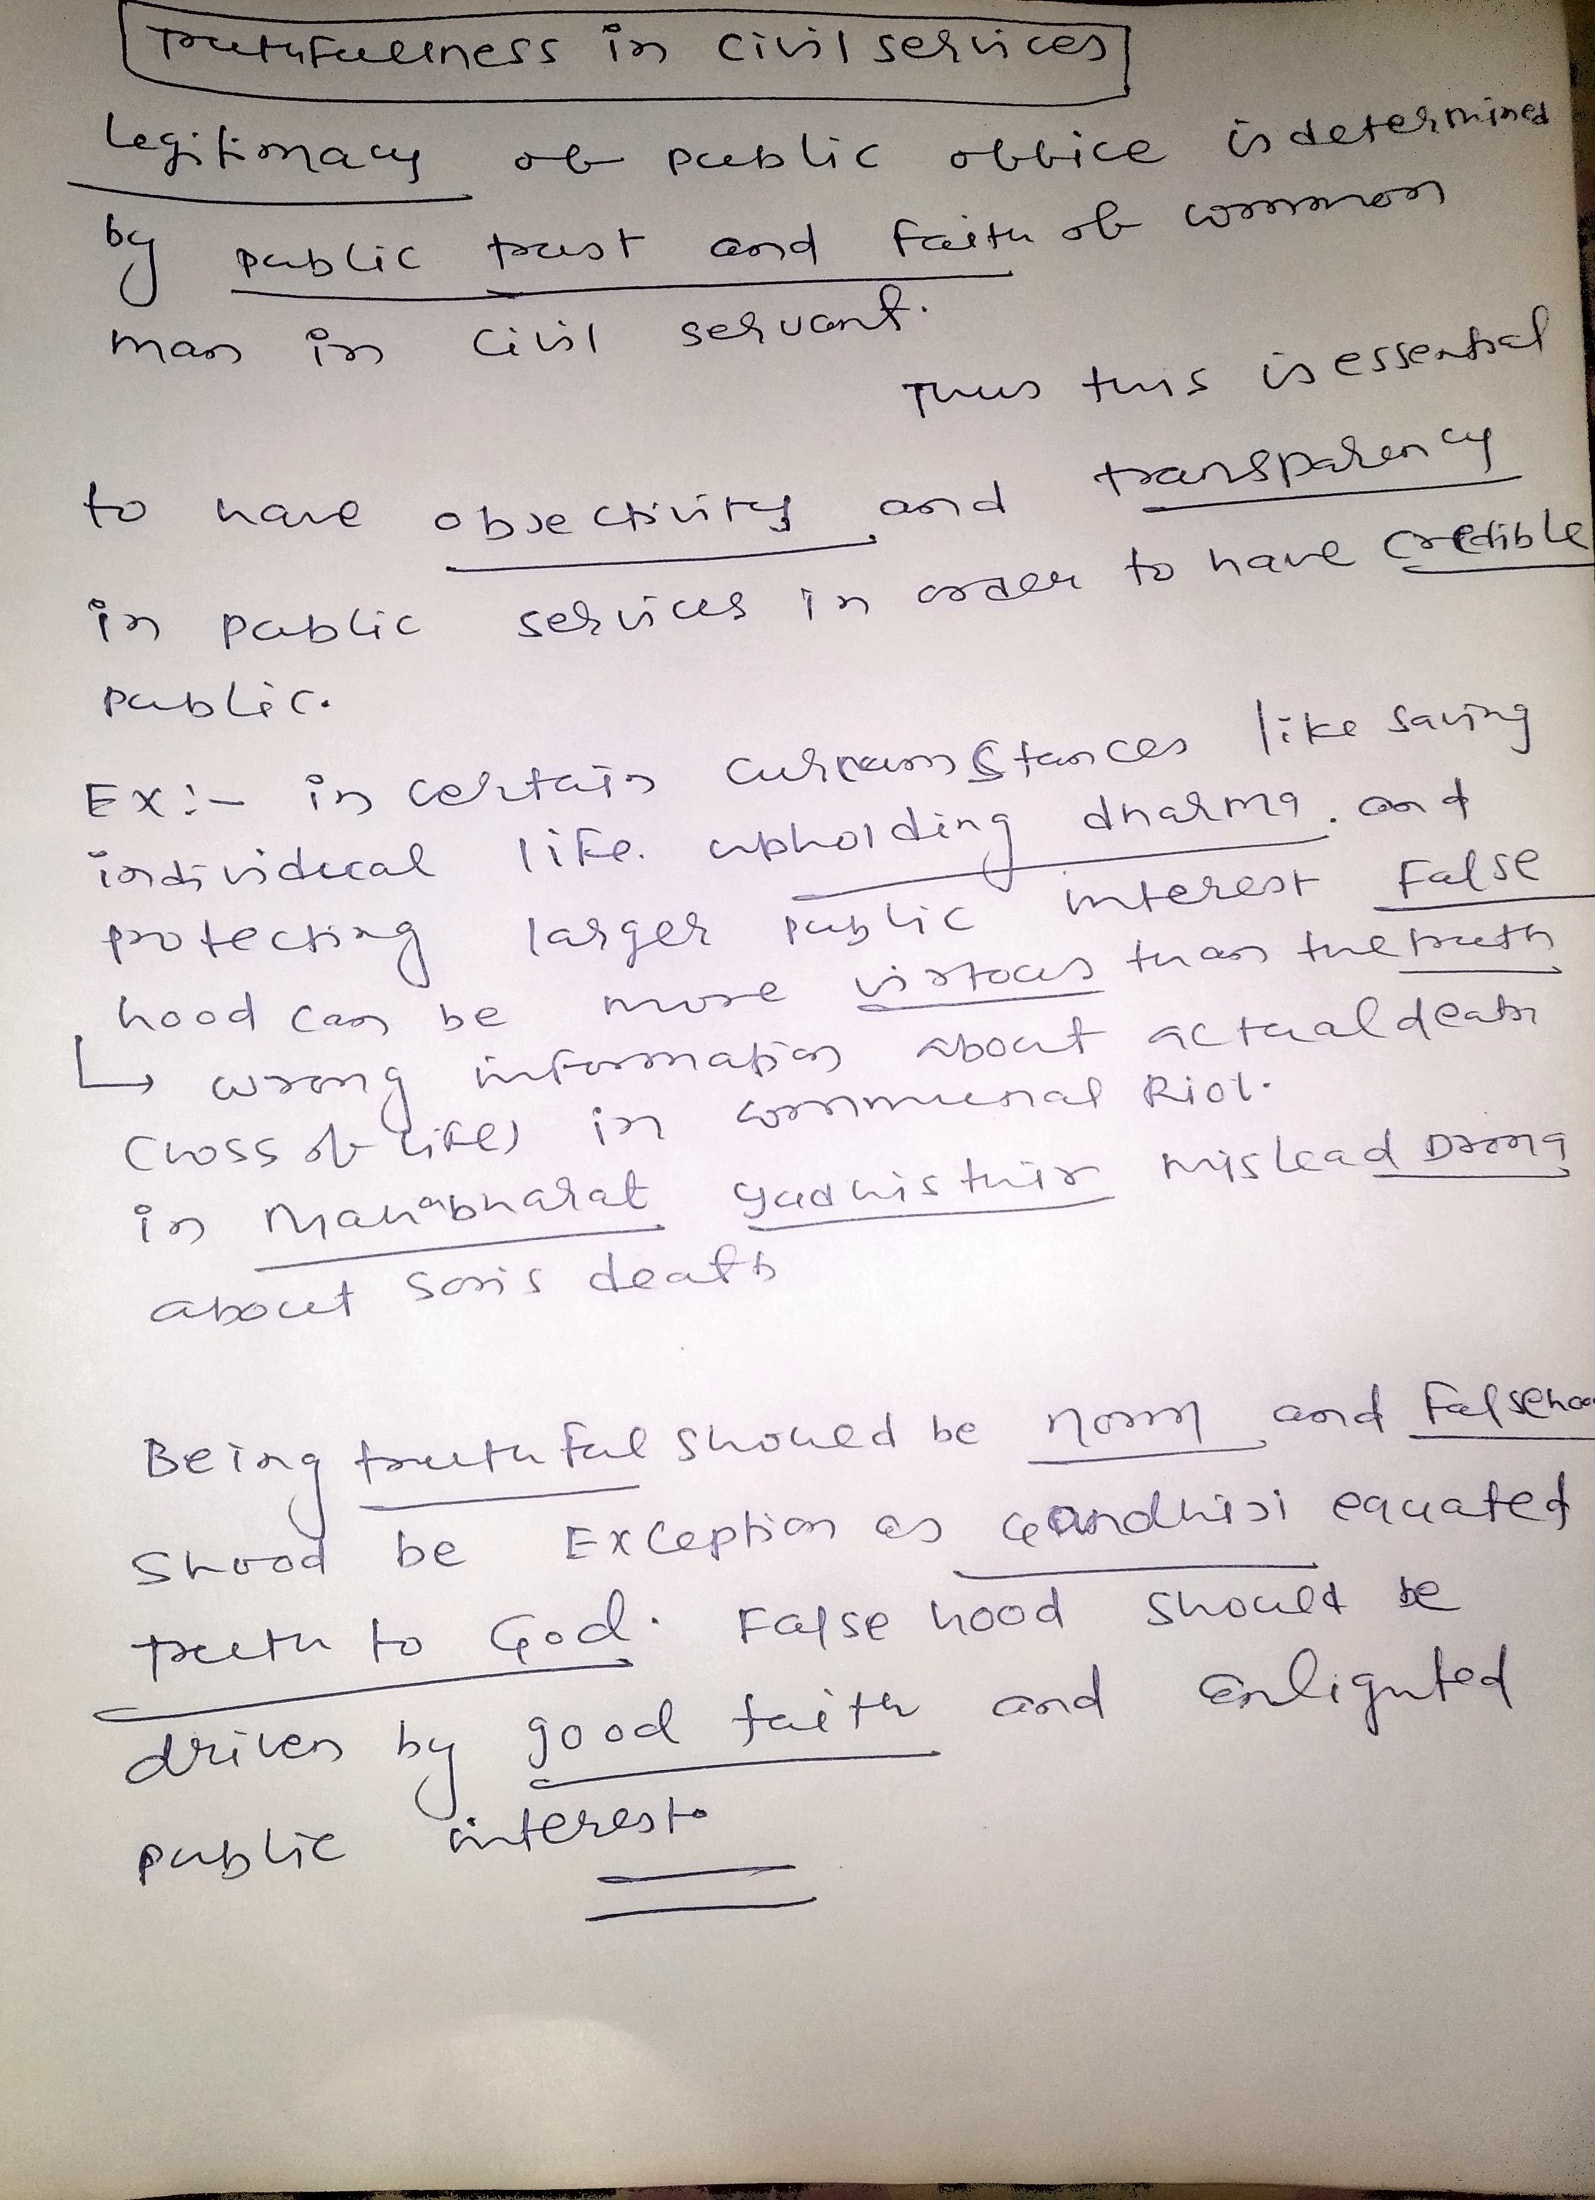 Truthfullness in civil services
Legitimacy of public office is determined
by public trust and faith of common
man in civil servant.
Thus this is essential
to have objectivity and transparency
in public services in order to have credible
public.
Ex:- in certain curcumstances like saving
individual life. upholding dharma. and
protecting larger public interest False
hood can be more virtous than the truth
↳ wrong information about actual death
(loss of life) in communal Riot.
in Mahabharat yudhisthir mislead Drona
about son's death
Being truthful should be norm and Falsehoo
shood be Exception as Gandhiji equated
truth to God. False hood should be
driven by good faith and enlighted
public interest.